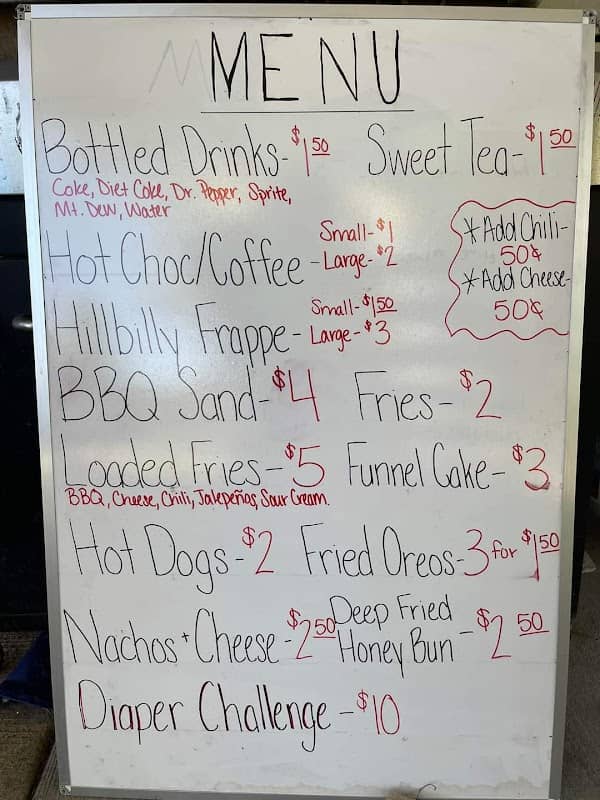 MENU
Bottled Drinks- $1 50 Sweet Tea- $1 50
Coke, Diet Coke, Dr. Pepper, Sprite,
Mt. Dew, Water
Hot Choc/Coffee - Small- $1
Large- $2
* Add Chili-
50¢
* Add Cheese-
50¢
Hillbilly Frappe- Small- $1 50
Large- $3
BBQ Sand- $4 Fries- $2
Loaded Fries- $5 Funnel Cake- $3
BBQ, Cheese, Chili, Jalepeños, Sour Cream
Hot Dogs- $2 Fried Oreos- 3 for $1 50
Nachos + Cheese - $2 50 Deep Fried
Honey Bun - $2 50
Diaper Challenge - $10